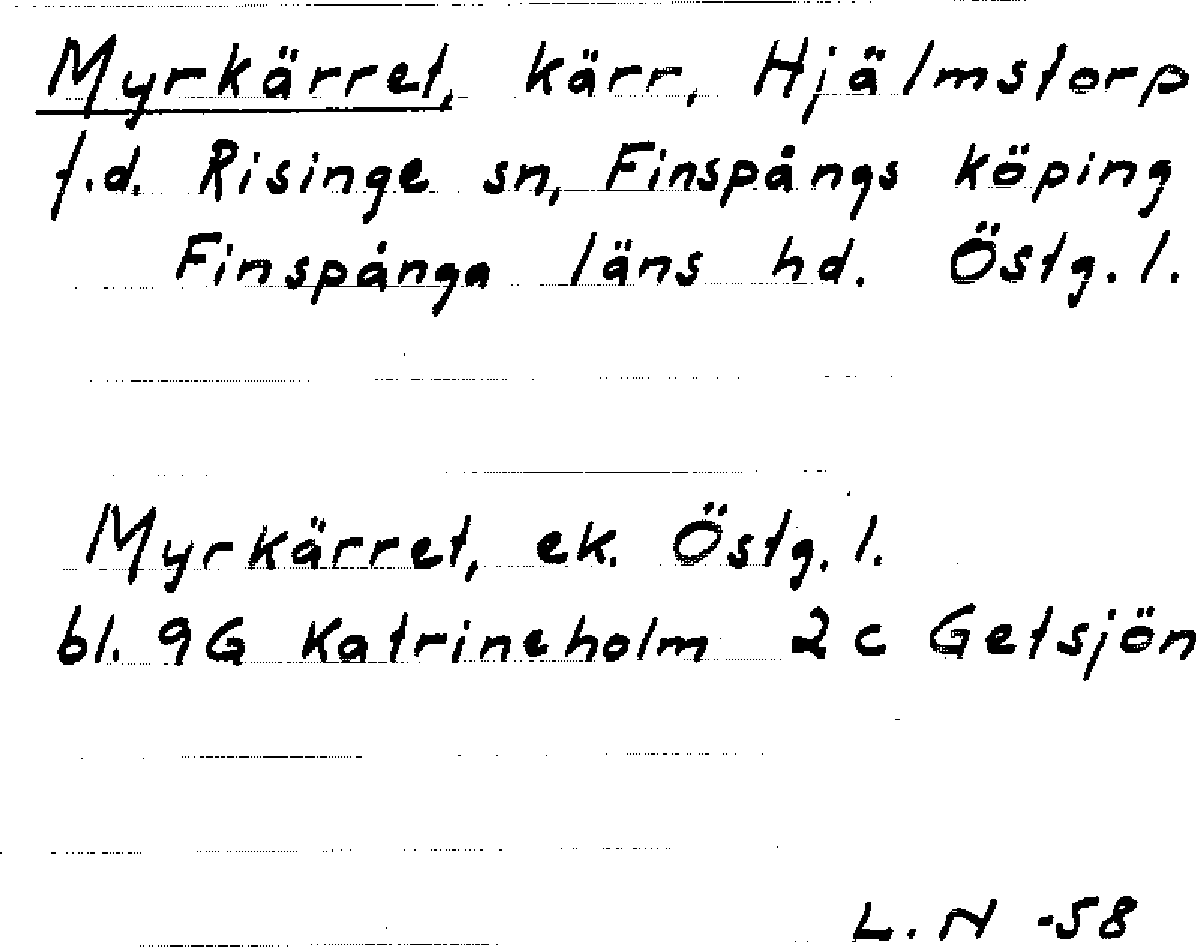 Myrkärret, kärr, Hjälmstorp
f.d. Risinge sn, Finspångs köping
Finspånga läns hd. Östg. l.
Myrkärret, ek. Östg. l.
bl. 9G Katrineholm 2c Getsjön
L. N -58